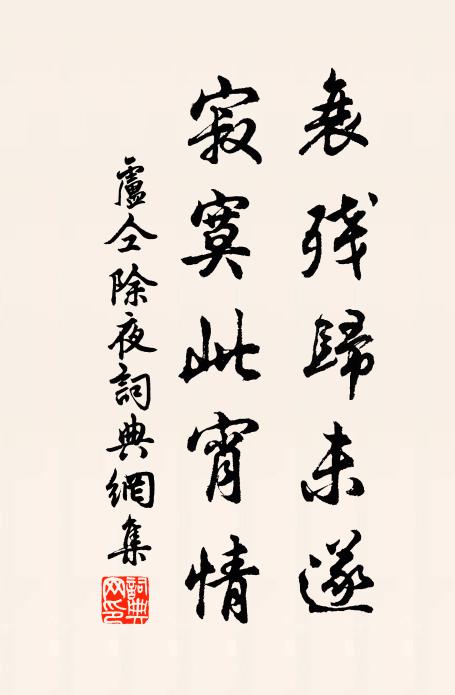 衰残歸未遂
寂寞此宵情
盧仝除夜詞典網集
詞典網印